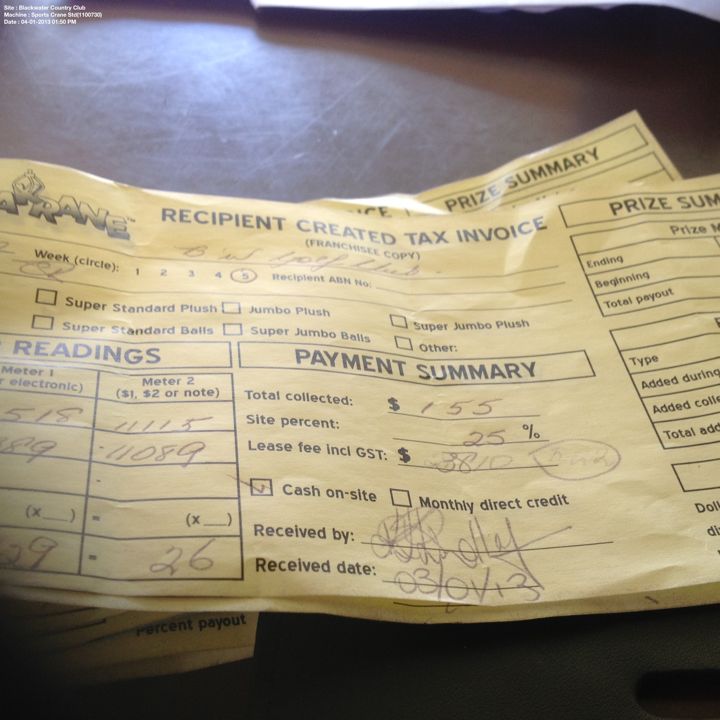 Site : Blackwater Country Club
Machine : Sports Crane Std(1100730)
Date : 04-01-2013 01:50 PM
PRIZE SUMMARY
RECIPIENT CREATED TAX INVOICE
(FRANCHISEE COPY)
PRIZE SUM
Prize M
Week (circle): 1 2 3 4 5 Recipient ABN No:
Ending
Beginning
Total payout
Super Standard Plush Jumbo Plush Super Jumbo Plush
Super Standard Balls Super Jumbo Balls Other:
READINGS
PAYMENT SUMMARY
Meter 1
r electronic)
Meter 2
($1, $2 or note)
Total collected: $ 155
Site percent: 25 %
Lease fee incl GST: $
518 11115
89 -11089
Type
Added during
Added colle
Total add
Cash on-site Monthly direct credit
(x__) = (x__)
29 = 26
Received by:
Received date: 03/01/13
Doll
di
Percent payout